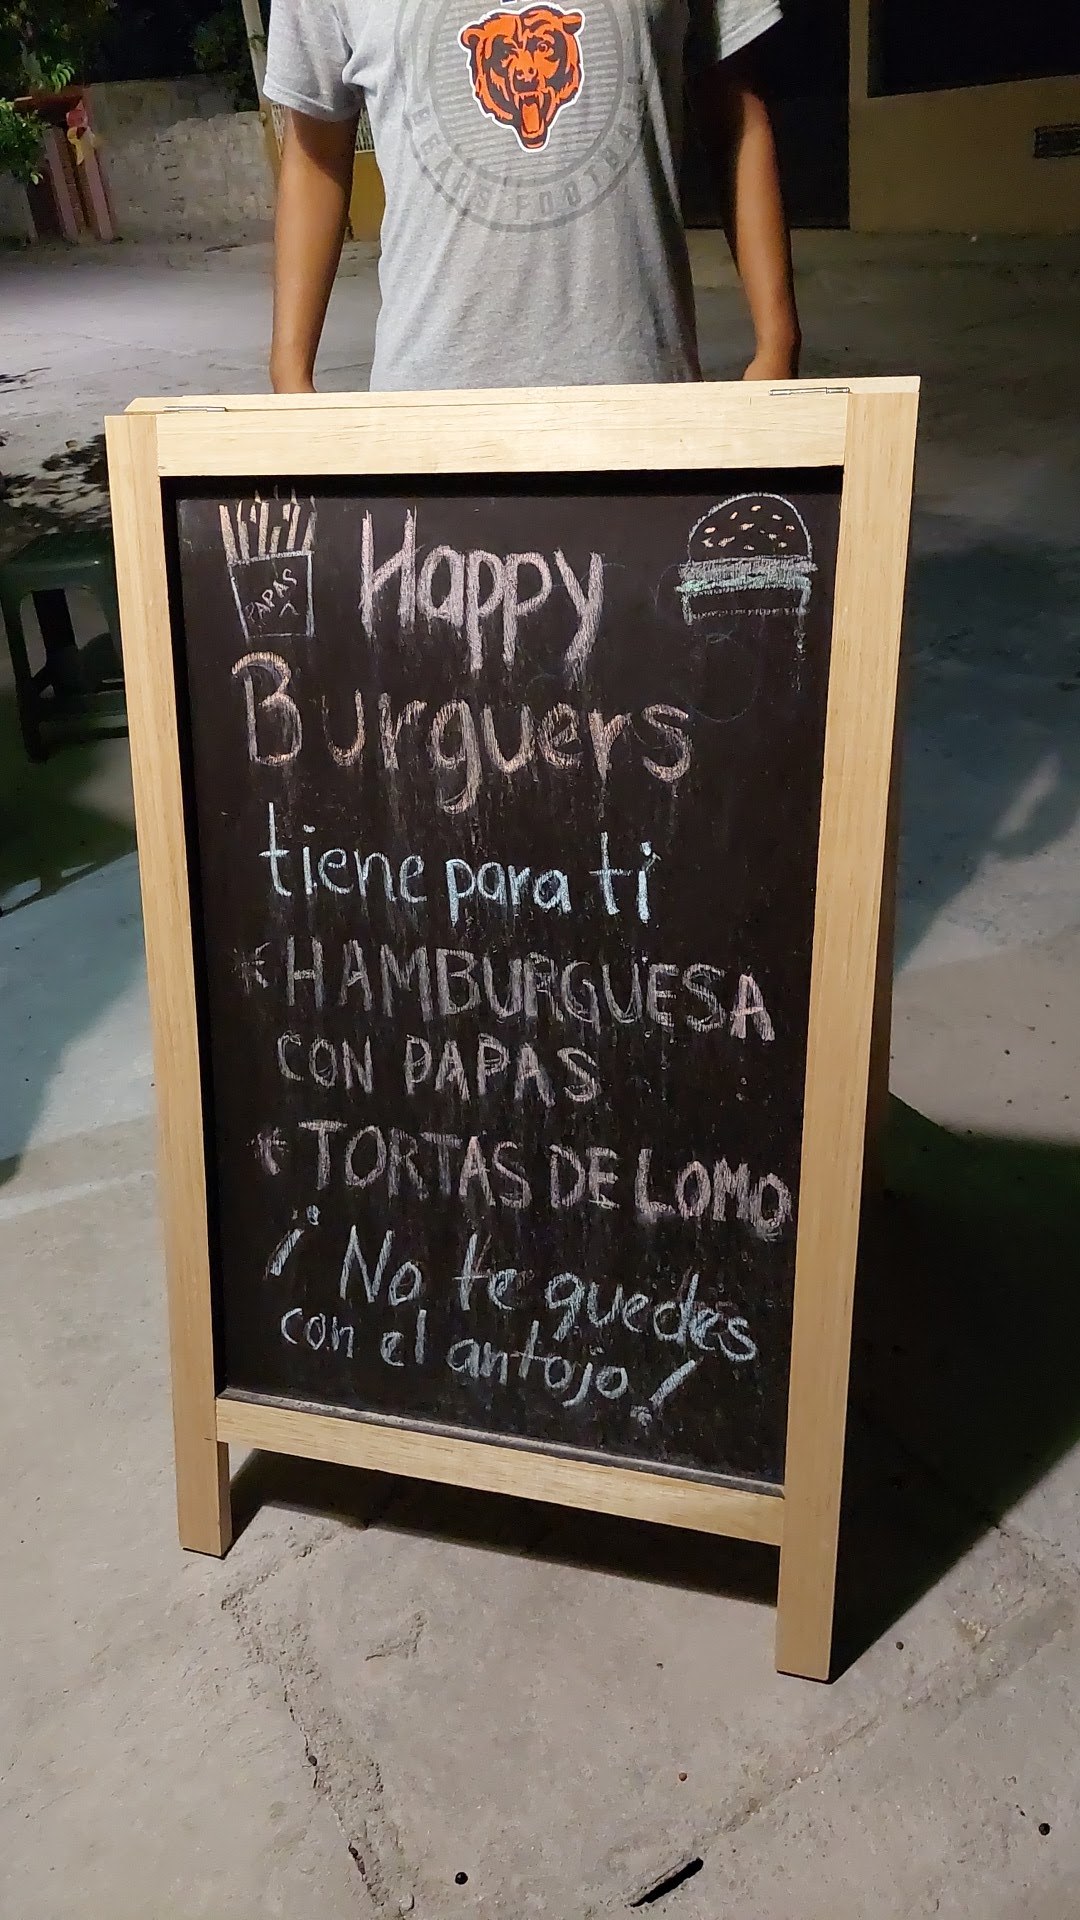 BEARS FOOTBALL
PAPAS
Happy
Burguers
tiene para ti
* HAMBURGUESA
CON PAPAS
* TORTAS DE LOMO
¡No te quedes
con el antojo!